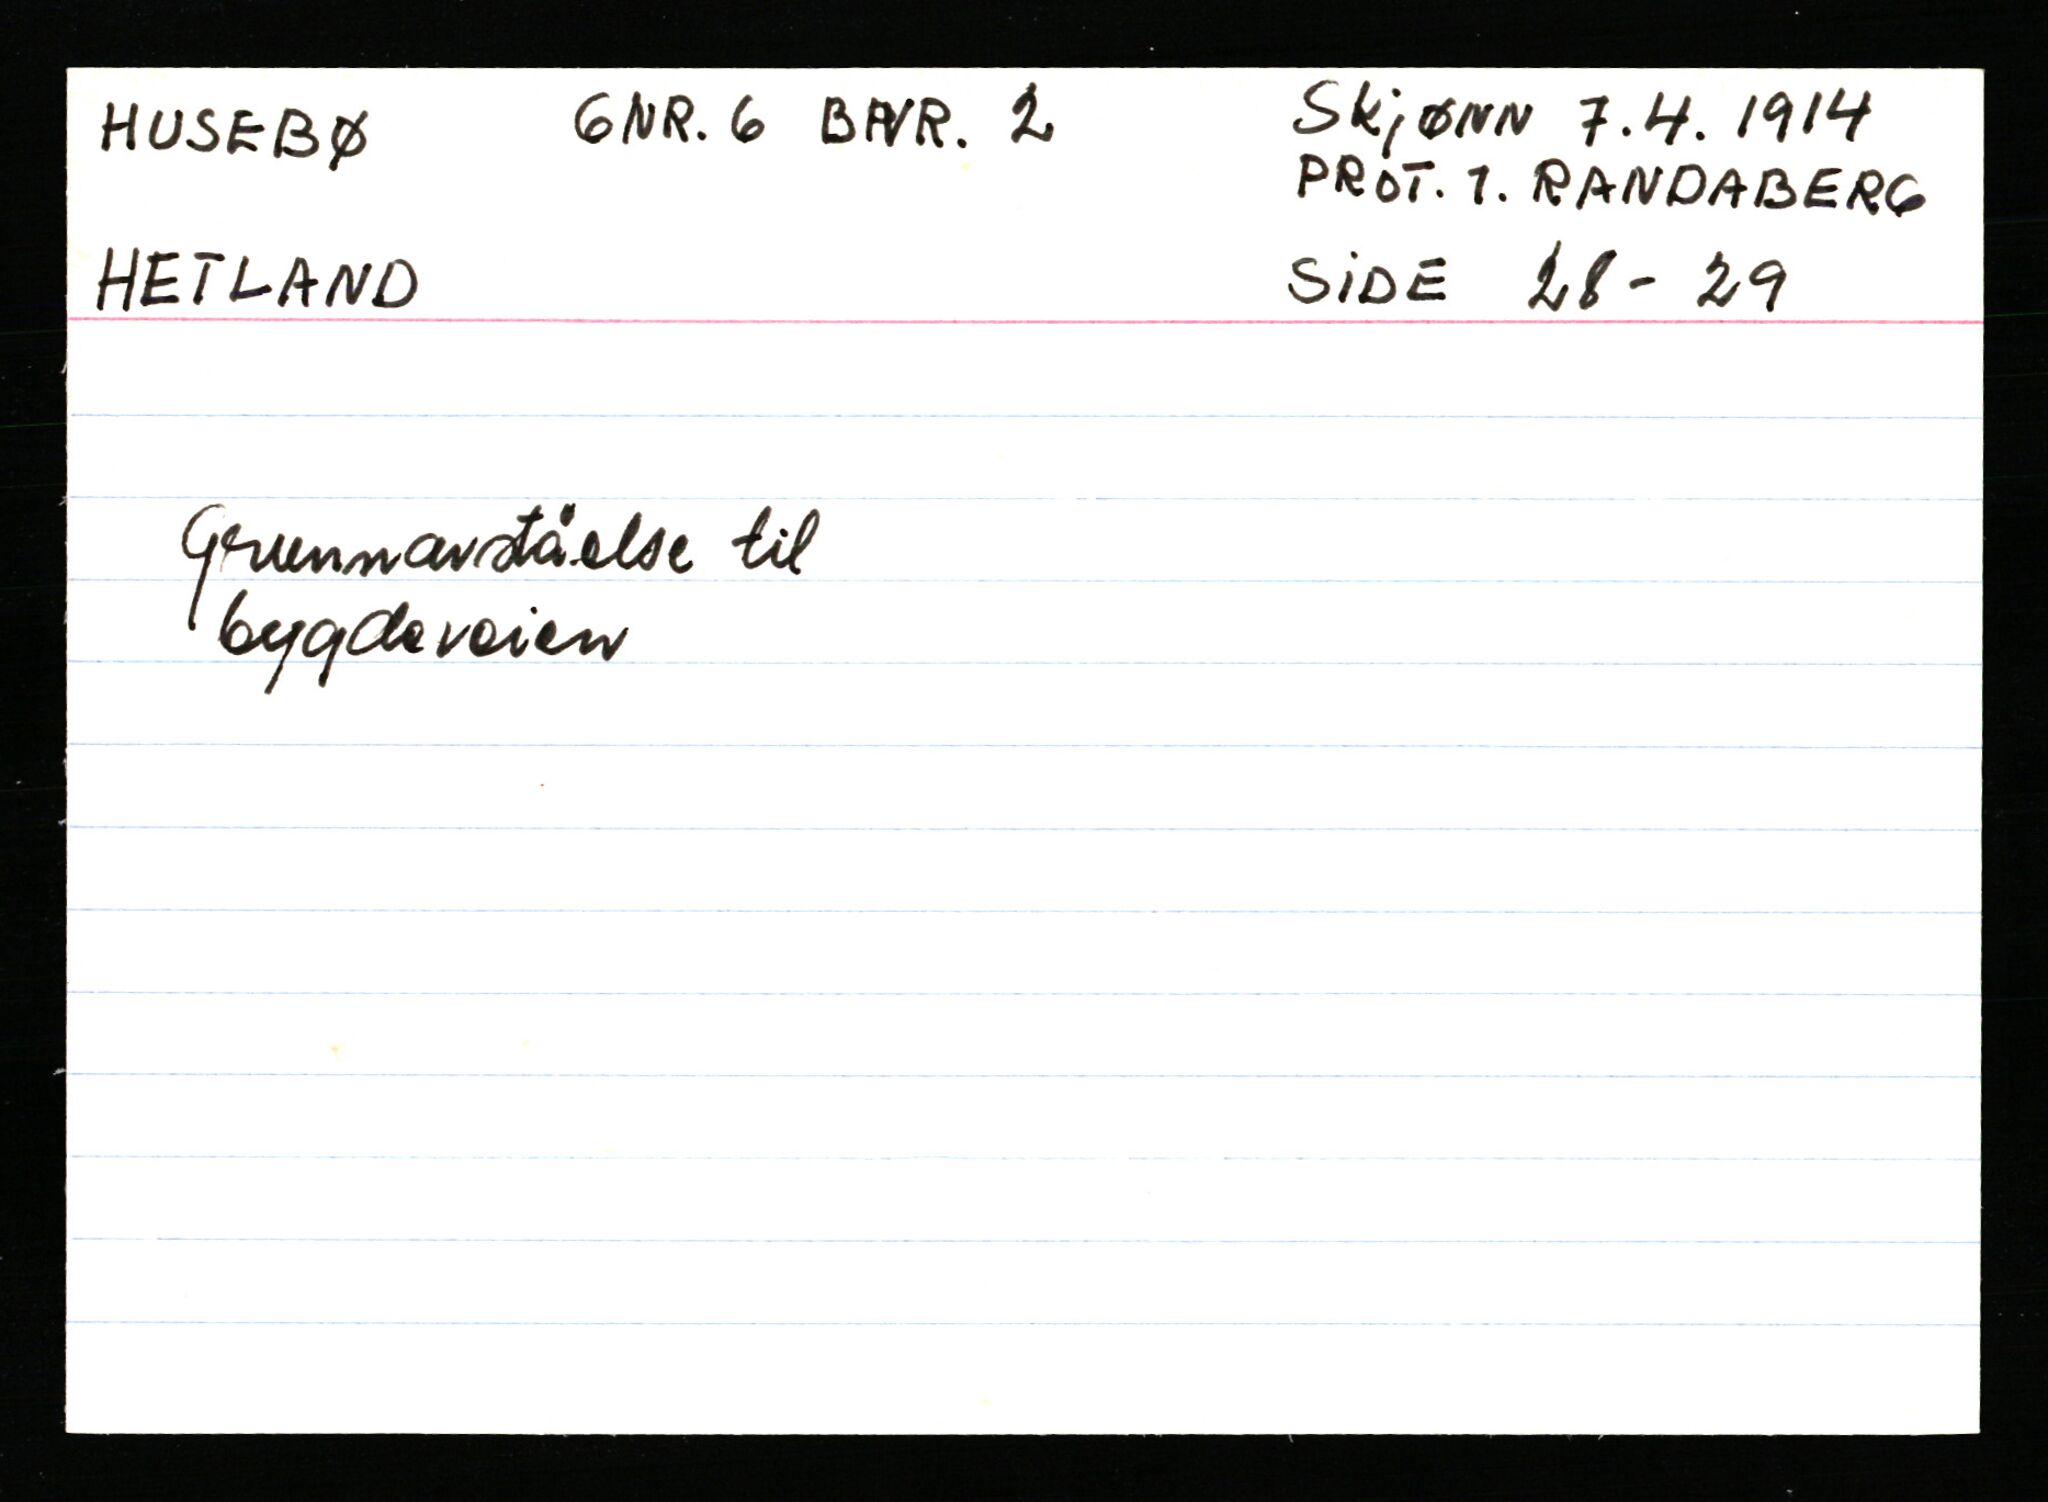 HUSEBØ GNR. 6 BNR. 2 Skjønn 7.4. 1914
PROT. 1. RANDABERG
HETLAND SIDE 28 - 29
Grunnavståelse til
bygdeveien